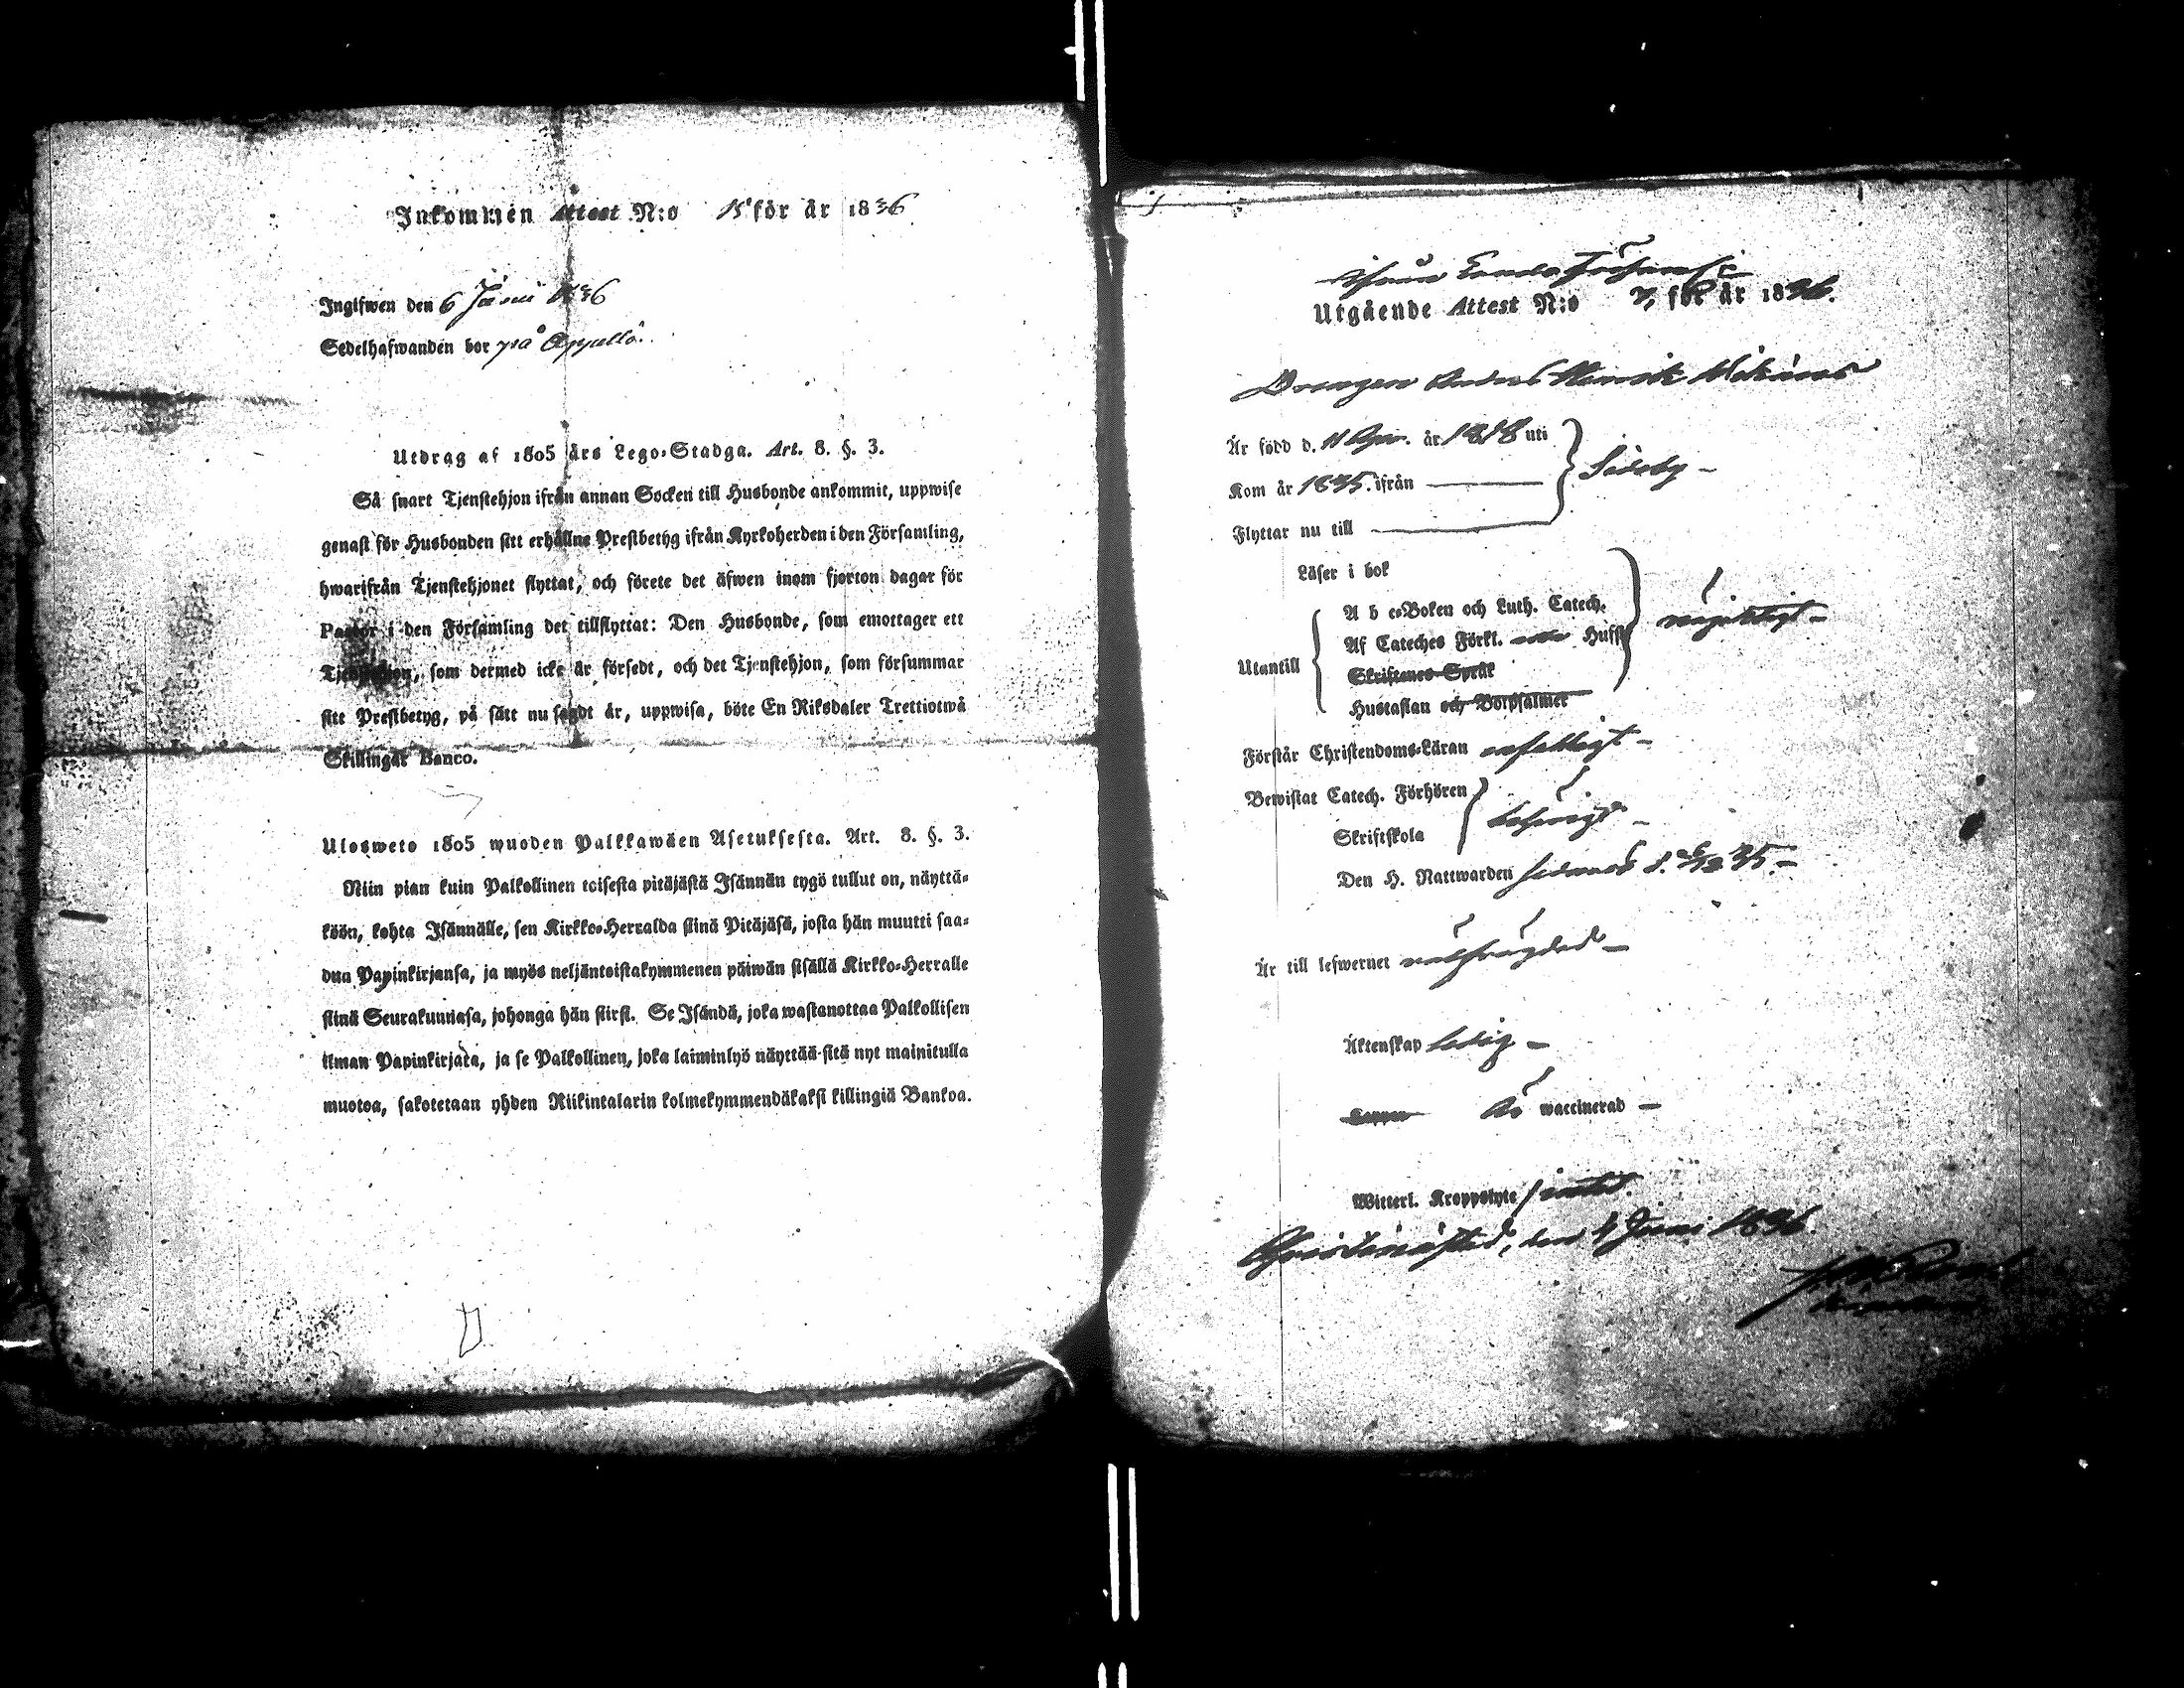 Inkommen Attest N:o 15 för år 1836
Ingifwen den 6 Juni 1836
Sedelhafwanden bor på
Utdrag af 1805 års Lego-Stadga. Art. 8. §. 3.
Så snart Tjenstehjon ifrån annan Socken till Husbonde ankommit, uppwise
genast för Husbonden sitt erhållne Prestbetyg ifrån Kyrkoherden i den Församling,
hwarifrån Tjenstehjonet flyttat, och förete det äfwen inom fjorton dagar för
Pastor i den Församling det tillflyttat: Den Husbonde, som emottager ett
Tjenstehjon, som dermed icke är försedt, och det Tjenstehjon, som försummar
sitt Prestbetyg, på sätt nu sagdt är, uppwisa, böte En Riksdaler Trettiotwå
Skillingar Banco.
Ulosweto 1805 wuoden Palkkawäen Asetuksesta. Art. 8. §. 3.
Niin pian kuin Palkollinen toisesta pitäjästä Isännän tygö tullut on, näyttä-
köön, kohta Isännälle, sen Kirkko-Herralda siinä Pitäjäsä, josta hän muutti saa-
dun Papinkirjansa, ja myös neljäntoistakymmenen päiwän sisällä Kirkko-Herralle
siinä Seurakunnasa, johonga hän siirsi. Se Isändä, joka wastanottaa Palkollisen
ilman Papinkirjata, ja se Palkollinen, joka laiminlyö näyttää sitä nyt mainitulla
muotoa, sakotetaan yhden Riikintalarin kolmekymmendäkaksi killingiä Bankoa.
Utgående Attest N:o 7, för år 1836.
Drengen Anders Henrik
Är född d. 11 Apr. år 1818 uti
Sideby
Kom år 1835. ifrån
Flyttar nu till
Läser i bok
Utantill
A b c-Boken och Luth. Catech.
Af Cateches Förkl. Hufst
Skriftenes Språk
Hustaflan och Botpsalmer
Förstår Christendoms-Läran enfaldigt
Bewistat Catech. Förhören
Skriftskola
Den H. Nattwarden
Är till lefwernet
Äktenskap ledig
Koppor Är waccinerad
Witterl. Kroppslyte intet.
Christinæstad, den 4 Juni 1836.